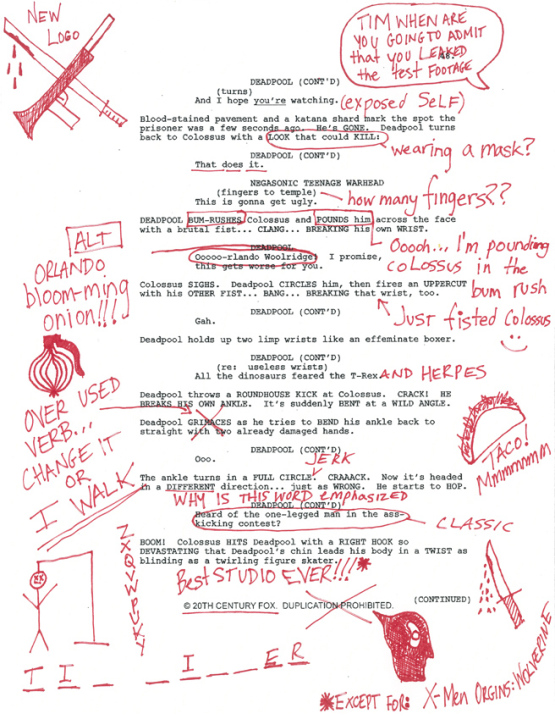 NEW
LOGO
TIM WHEN ARE
YOU GOING TO ADMIT
that you LEAKED
the test FOOTAGE
DEADPOOL (CONT'D)
(turns)
And I hope you're watching. (exposed SELF)
Blood-stained pavement and a katana shard mark the spot the
prisoner was a few seconds ago. He's GONE. Deadpool turns
back to Colossus with a LOOK that could KILL:
wearing a mask?
DEADPOOL (CONT'D)
That does it.
NEGASONIC TEENAGE WARHEAD
(fingers to temple)
how many fingers??
This is gonna get ugly.
DEADPOOL BUM-RUSHES Colossus and POUNDS him across the face
with a brutal fist... CLANG... BREAKING his own WRIST.
ALT
ORLANDO
bloom-ming
onion!!!!
DEADPOOL
Ooooo-rlando Woolridge! I promise,
this gets worse for you.
Ooooh... I'm pounding
coLossus in the
bum rush
Colossus SIGHS. Deadpool CIRCLES him, then fires an UPPERCUT
with his OTHER FIST... BANG... BREAKING that wrist, too.
Just fisted Colossus
DEADPOOL (CONT'D)
Gah.
Deadpool holds up two limp wrists like an effeminate boxer.
DEADPOOL (CONT'D)
(re: useless wrists)
All the dinosaurs feared the T-Rex AND HERPES
Deadpool throws a ROUNDHOUSE KICK at Colossus. CRACK! HE
BREAKS HIS OWN ANKLE. It's suddenly BENT at a WILD ANGLE.
OVER USED
VERB...
CHANGE IT
OR
I WALK
Deadpool GRIMACES as he tries to BEND his ankle back to
straight with two already damaged hands.
TACO!
Mmmmmmm
DEADPOOL (CONT'D)
Ooo.
JERK
The ankle turns in a FULL CIRCLE. CRAAACK. Now it's headed
in a DIFFERENT direction... just as WRONG. He starts to HOP.
WHY IS THIS WORD emphasized
DEADPOOL (CONT'D)
Heard of the one-legged man in the ass-
kicking contest?
CLASSIC
BOOM! Colossus HITS Deadpool with a RIGHT HOOK so
DEVASTATING that Deadpool's chin leads his body in a TWIST as
blinding as a twirling figure skater.
Best STUDIO EVER!!!*
(CONTINUED)
© 20TH CENTURY FOX. DUPLICATION PROHIBITED.
ZXQVWPUKY
T I _ _ I _ _ E R
*EXCEPT FOR: X-Men ORGINS: WOLVERINE